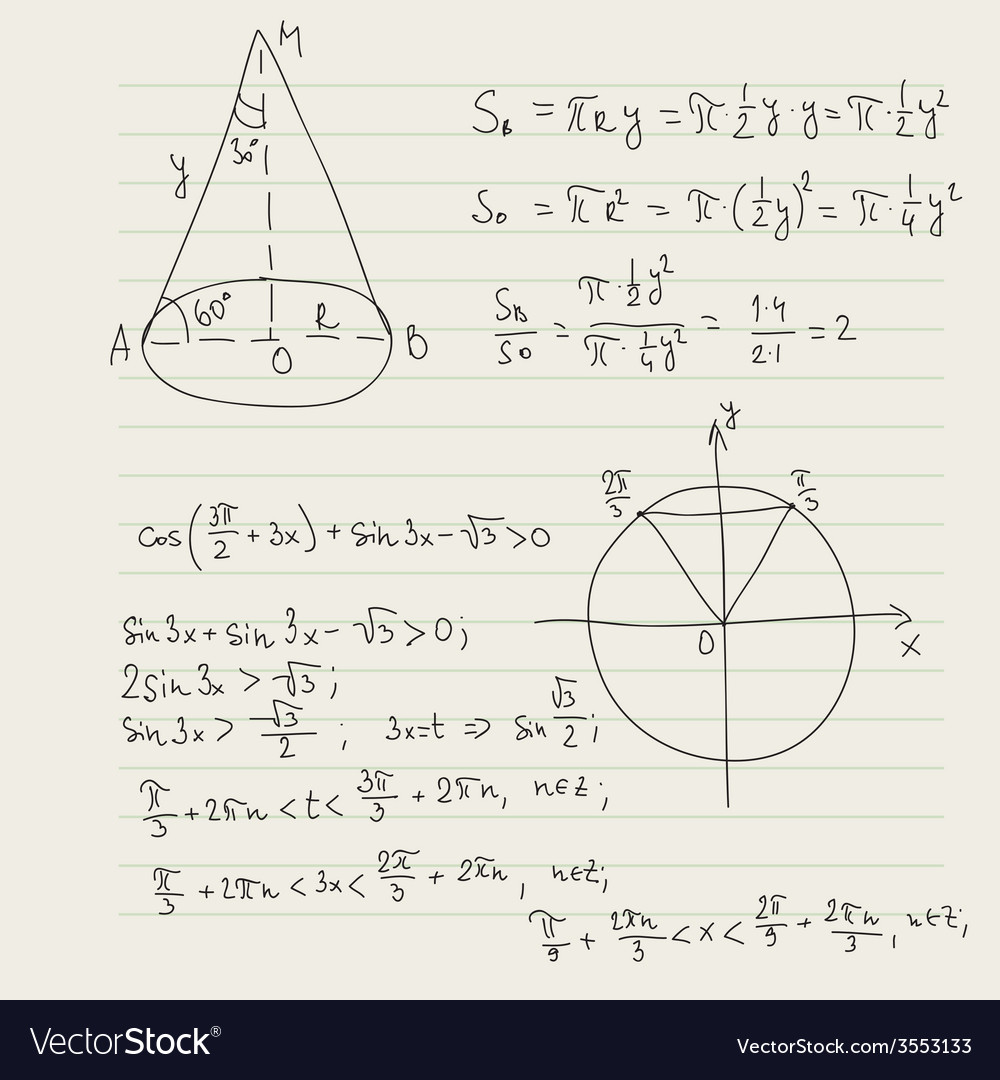 M
y
30°
60°
R
A
O
B
S_B = πRy = π·1/2 y·y = π·1/2 y²
S_O = πR² = π·(1/2 y)² = π·1/4 y²
S_B/S_O = (π·1/2 y²)/(π·1/4 y²) = (1·4)/(2·1) = 2
y
2π/3
π/3
O
x
cos(3π/2 + 3x) + sin 3x − √3 > 0
sin 3x + sin 3x − √3 > 0;
2 sin 3x > √3;
sin 3x > √3/2; 3x=t ⇒ sin √3/2;
π/3 + 2πn < t < 3π/3 + 2πn, n∈Z;
π/3 + 2πn < 3x < 2π/3 + 2πn, n∈Z;
π/9 + 2πn/3 < x < 2π/9 + 2πn/3, n∈Z;
VectorStock®
VectorStock.com/3553133